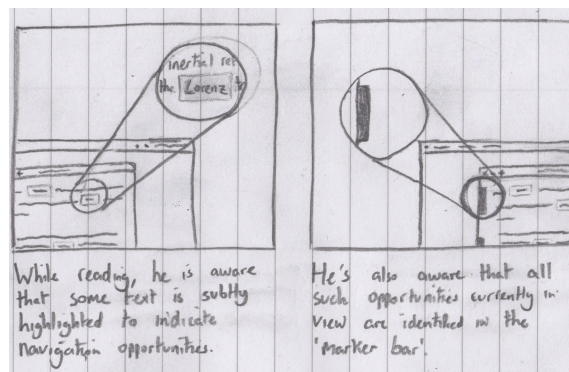 inertial ref
the Lorenz tr
While reading, he is aware
that some text is subtly
highlighted to indicate
navigation opportunities.
He's also aware that all
such opportunities currently in
view are identified in the
'marker bar'.